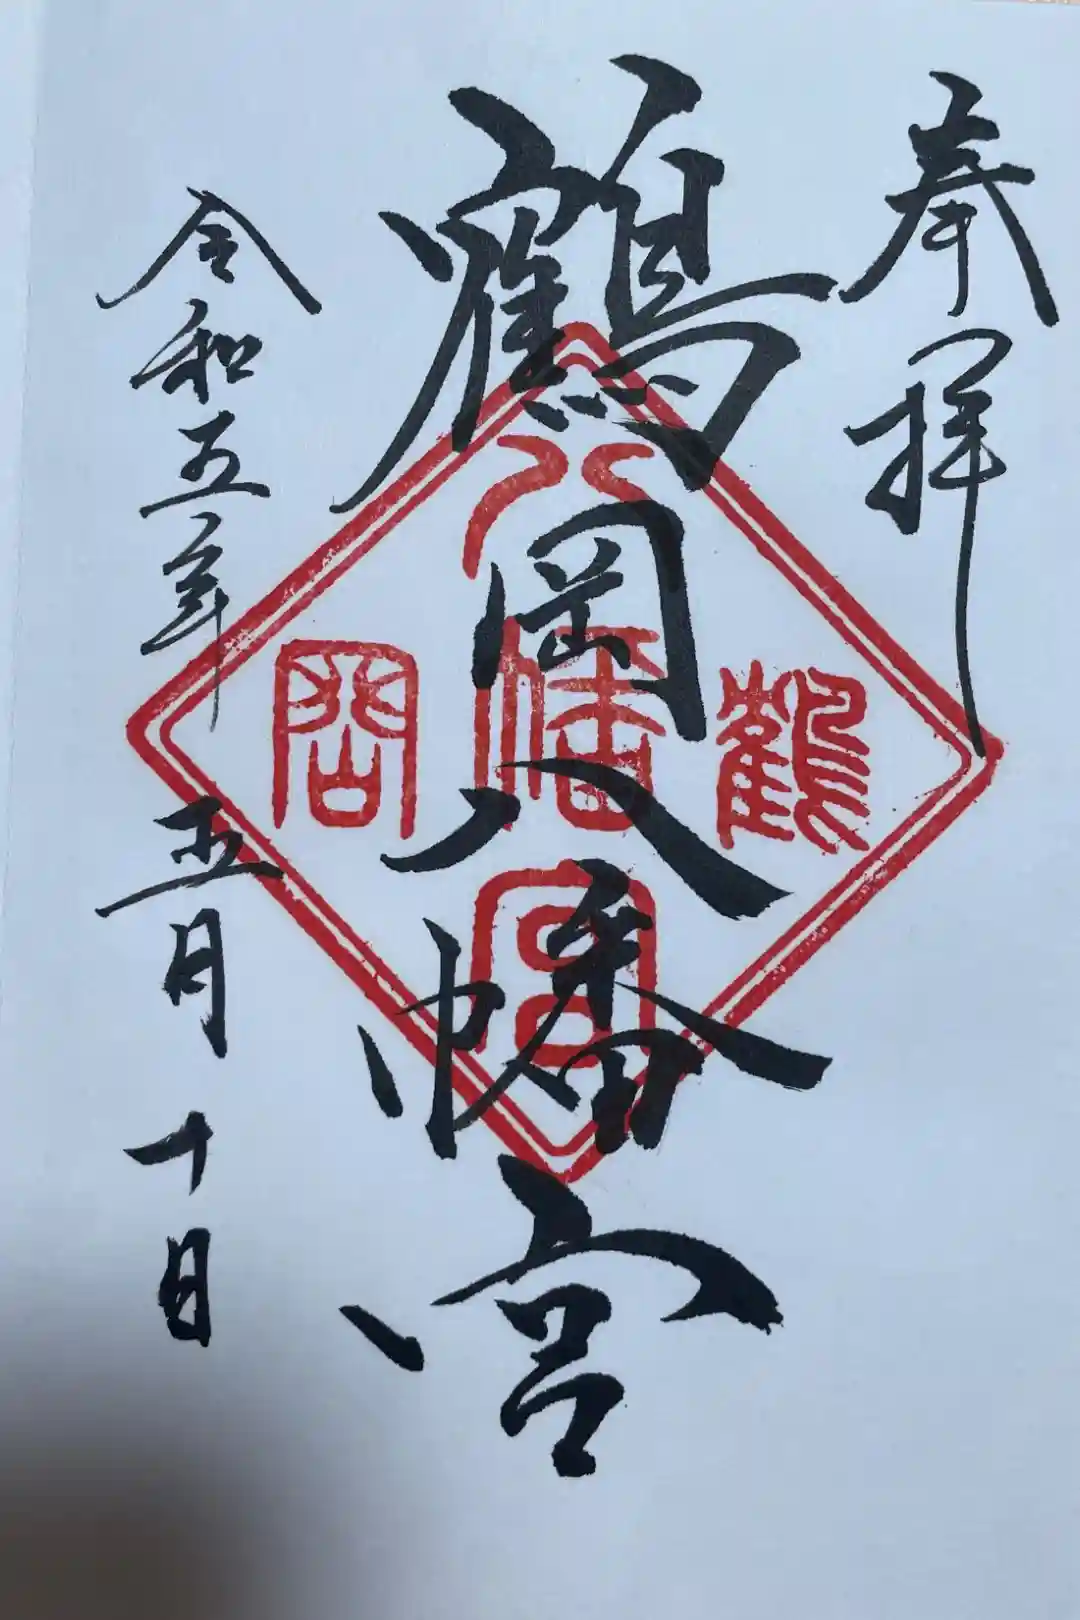 奉拝
鶴岡八幡宮
鶴
八幡宮
岡
令和五年 五月 十日